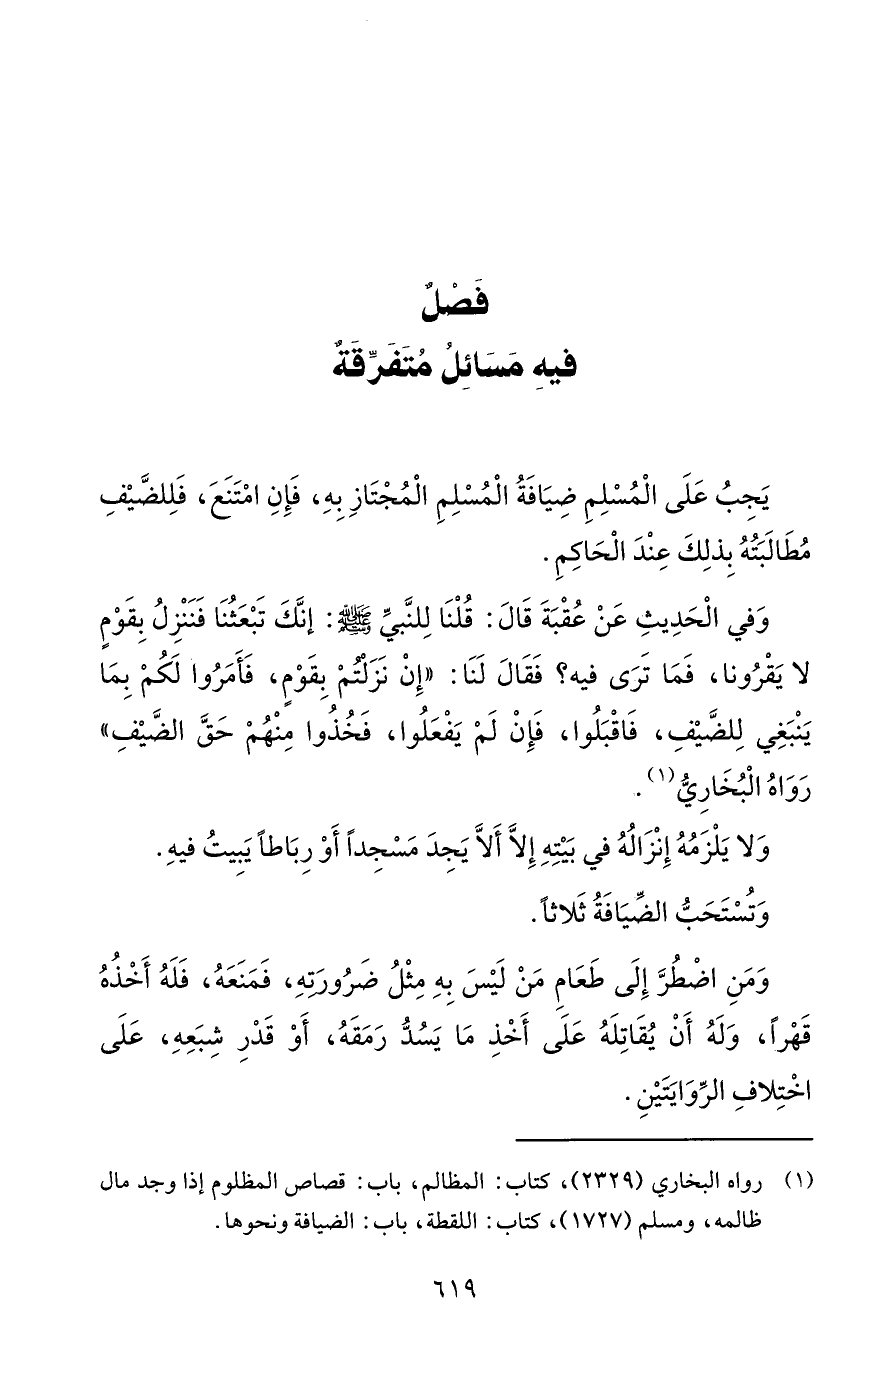 فَصْلٌ
فيهِ مَسَائِلُ مُتَفَرِّقَةٌ
يَجِبُ عَلَى الْمُسْلِمِ ضِيَافَةُ الْمُسْلِمِ الْمُجْتَازِ بِهِ، فَإِنِ امْتَنَعَ، فَلِلضَّيْفِ
مُطَالَبَتُهُ بِذلِكَ عِنْدَ الْحَاكِمِ.
وَفي الْحَدِيثِ عَنْ عُقْبَةَ قَالَ: قُلْنَا لِلنَّبيِّ ﷺ: إنَّكَ تَبْعَثُنَا فَنَنْزِلُ بِقَوْمٍ
لا يَقْرُونا، فَمَا تَرَى فيه؟ فَقَالَ لَنَا: «إِنْ نَزَلْتُمْ بِقَوْمٍ، فَأَمَرُوا لَكُمْ بِمَا
يَنْبَغِي لِلضَّيْفِ، فَاقْبَلُوا، فَإِنْ لَمْ يَفْعَلُوا، فَخُذُوا مِنْهُمْ حَقَّ الضَّيْفِ»
رَوَاهُ الْبُخَارِيُّ(١).
وَلا يَلْزَمُهُ إِنْزَالُهُ في بَيْتِهِ إِلاَّ أَلاَّ يَجِدَ مَسْجِداً أَوْ رِبَاطاً يَبِيتُ فيهِ.
وَتُسْتَحَبُّ الضِّيَافَةُ ثَلاثاً.
وَمَنِ اضْطُرَّ إِلَى طَعَامِ مَنْ لَيْسَ بِهِ مِثْلُ ضَرُورَتِهِ، فَمَنَعَهُ، فَلَهُ أَخْذُهُ
قَهْراً، وَلَهُ أَنْ يُقَاتِلَهُ عَلَى أَخْذِ مَا يَسُدُّ رَمَقَهُ، أَوْ قَدْرِ شِبَعِهِ، عَلَى
اخْتِلافِ الرِّوَايَتَيْنِ.
(١) رواه البخاري (٢٣٢٩)، كتاب: المظالم، باب: قصاص المظلوم إذا وجد مال
ظالمه، ومسلم (١٧٢٧)، كتاب: اللقطة، باب: الضيافة ونحوها.
٦١٩